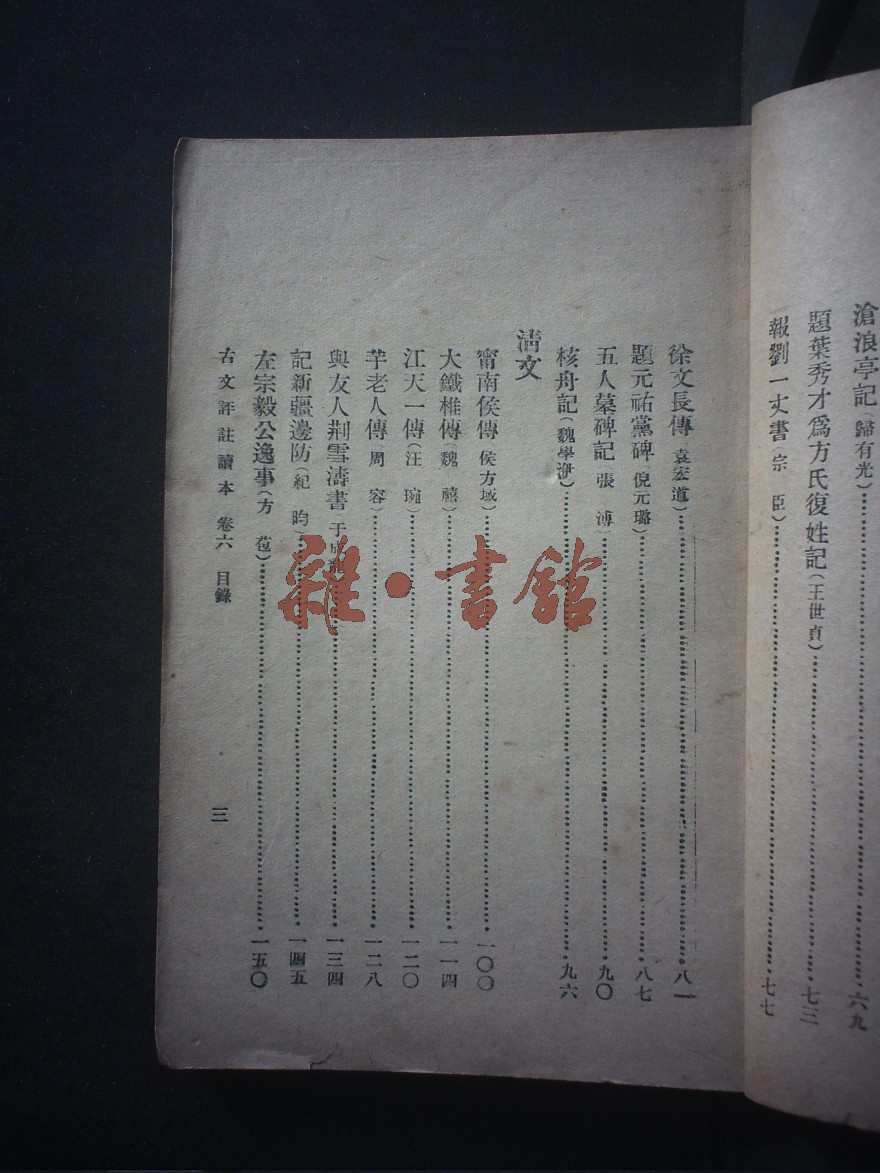 滄浪亭記(歸有光)……六九
題葉秀才爲方氏復姓記(王世貞)……七三
報劉一丈書(宗 臣)……七七
徐文長傳(袁宏道)……八一
題元祐黨碑(倪元璐)……八七
五人墓碑記(張 溥)……九〇
核舟記(魏學洢)……九六
清文
甯南侯傳(侯方域)……一〇〇
大鐵椎傳(魏 禧)……一一四
江天一傳(汪 琬)……一二〇
芋老人傳(周 容)……一二八
與友人荆雪濤書(于成龍)……一三四
記新疆邊防(紀 昀)……一四五
左宗毅公逸事(方 苞)……一五〇
古文評註讀本 卷六 目錄
三
雜·書館